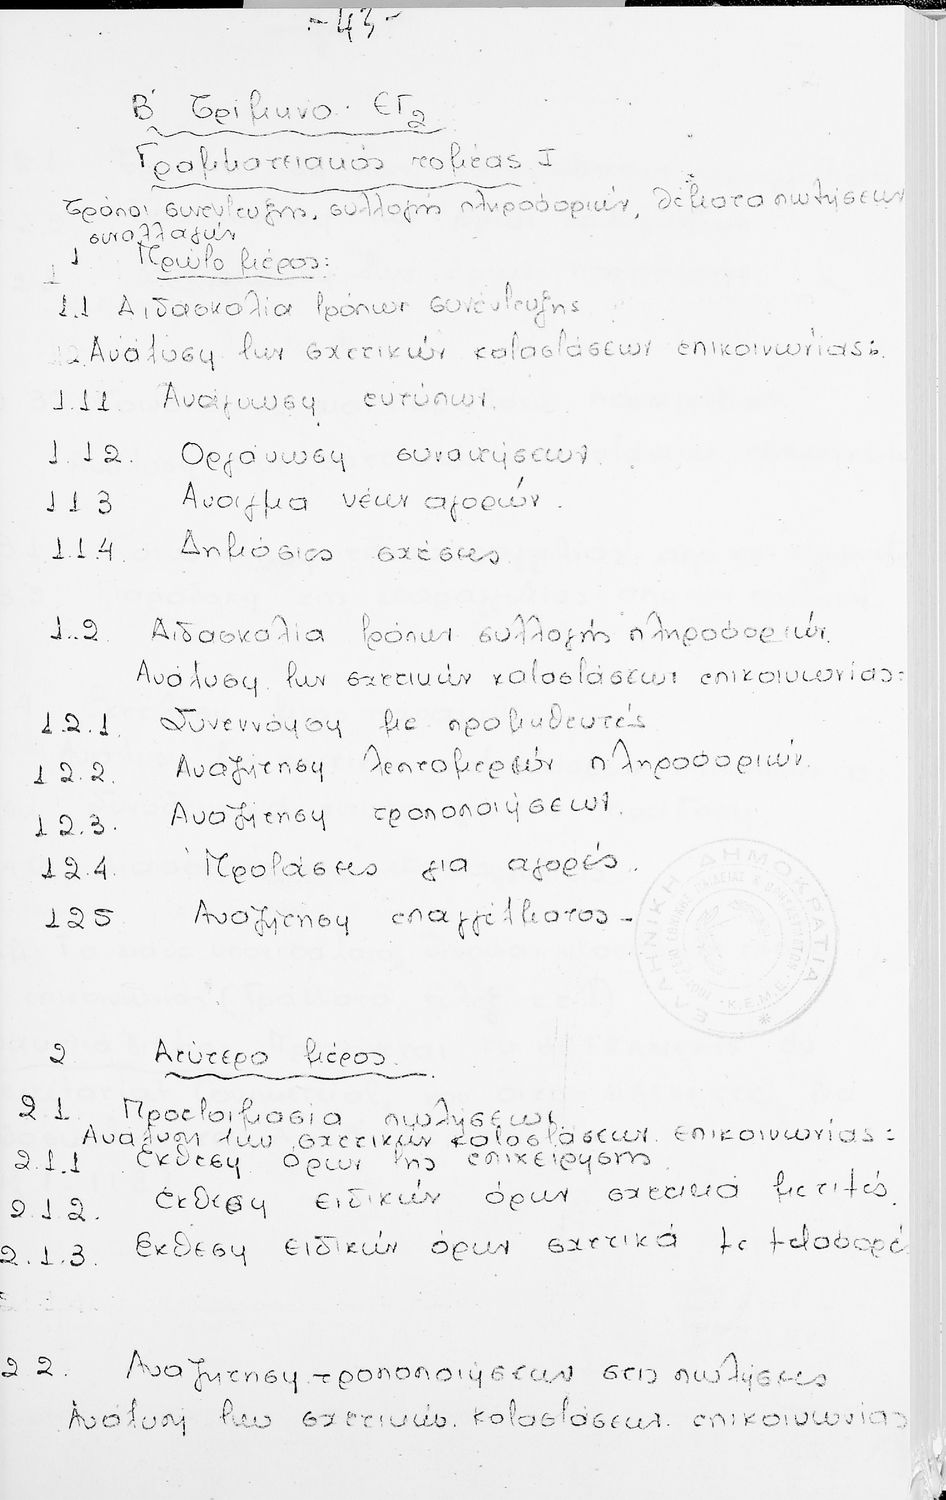 -43-
Β' Τρίμηνο. ΕΓ2
Γραμματειακός τομέας Ι
Τρόποι συνέντευξης, συλλογής πληροφοριών, θέματα πωλήσεων
συναλλαγών
1 Πρώτο μέρος:
1.1 Διδασκαλία τρόπων συνέντευξης
Ανάλυση των σχετικών καταστάσεων επικοινωνίας:
1.11 Ανάγνωση εντύπων.
1.12. Οργάνωση συναντήσεων.
113 Άνοιγμα νέων αγορών.
1.1.4. Δημόσιες σχέσεις
1.2 Διδασκαλία τρόπων συλλογής πληροφοριών.
Ανάλυση των σχετικών καταστάσεων επικοινωνίας:
1.2.1 Συνεννόηση με προμηθευτές
1 2.2. Αναζήτηση λεπτομερών πληροφοριών.
1 2.3. Αναζήτηση τροποποιήσεων.
1 2.4. Προτάσεις για αγορές.
125 Αναζήτηση επαγγέλματος -
ΕΛΛΗΝΙΚΗ ΔΗΜΟΚΡΑΤΙΑ
Κ.Ε.Μ.Ε.
2 Δεύτερο μέρος.
2 1 Προετοιμασία πωλήσεων
Ανάλυση των σχετικών καταστάσεων επικοινωνίας:
2.1.1 Έκθεση όρων της επιχείρησης
2.1.2. Έκθεση ειδικών όρων σχετικά με τιμές.
2.1.3. Έκθεση ειδικών όρων σχετικά με
2 2. Αναζήτηση τροποποιήσεων στις πωλήσεις
Ανάλυση των σχετικών καταστάσεων επικοινωνίας